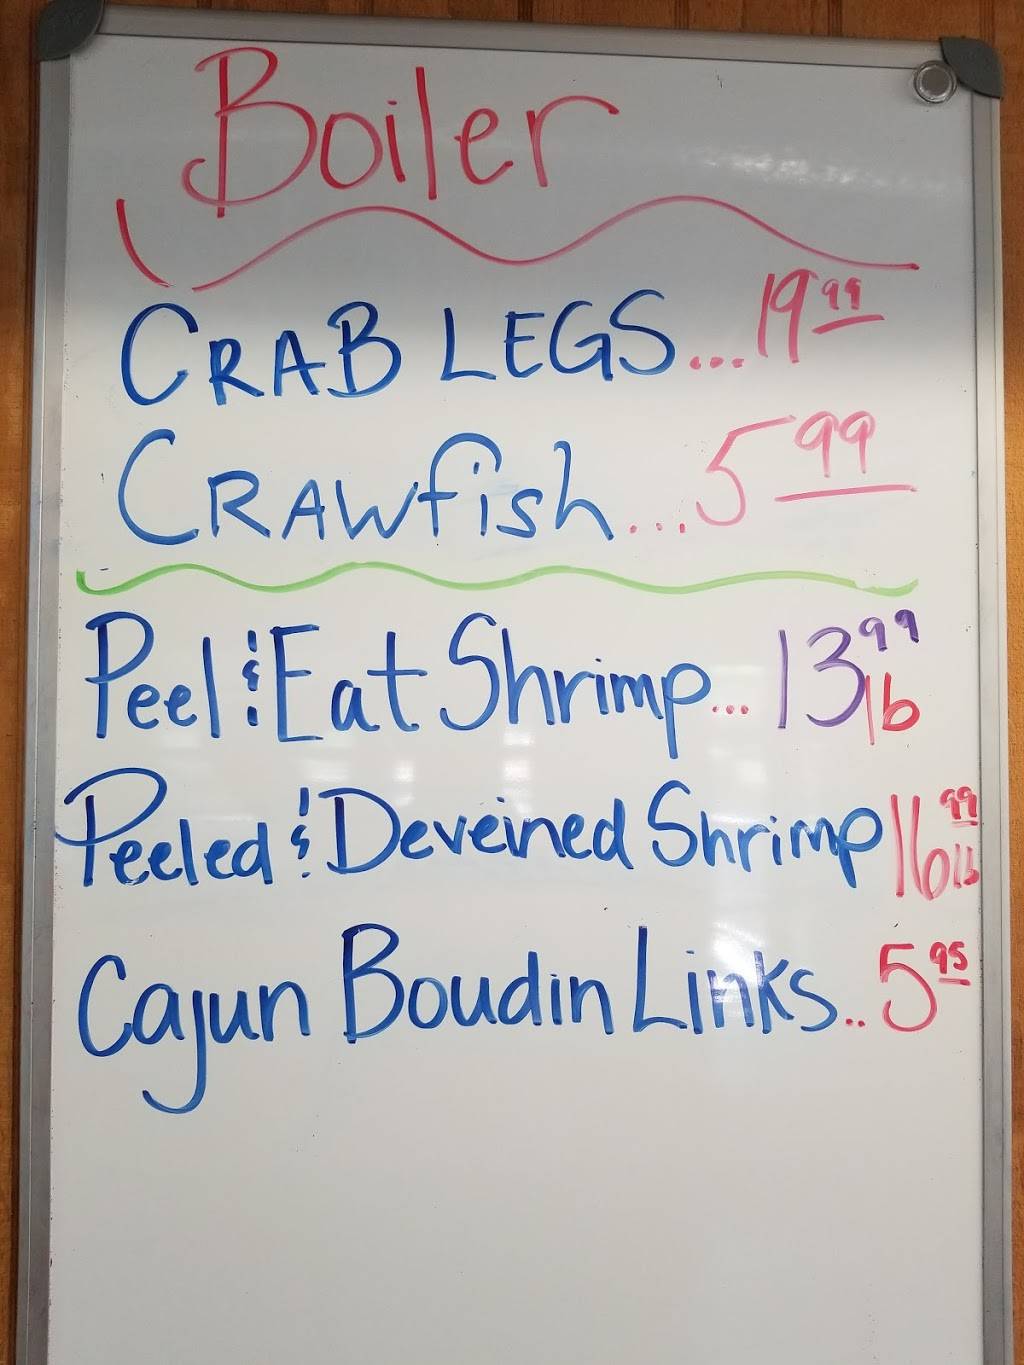 Boiler
CRAB LEGS...19 99
CRAWfish...5 99
Peel & Eat Shrimp...13 99 lb
Peeled & Deveined Shrimp 16 99 lb
Cajun Boudin Links..5 95